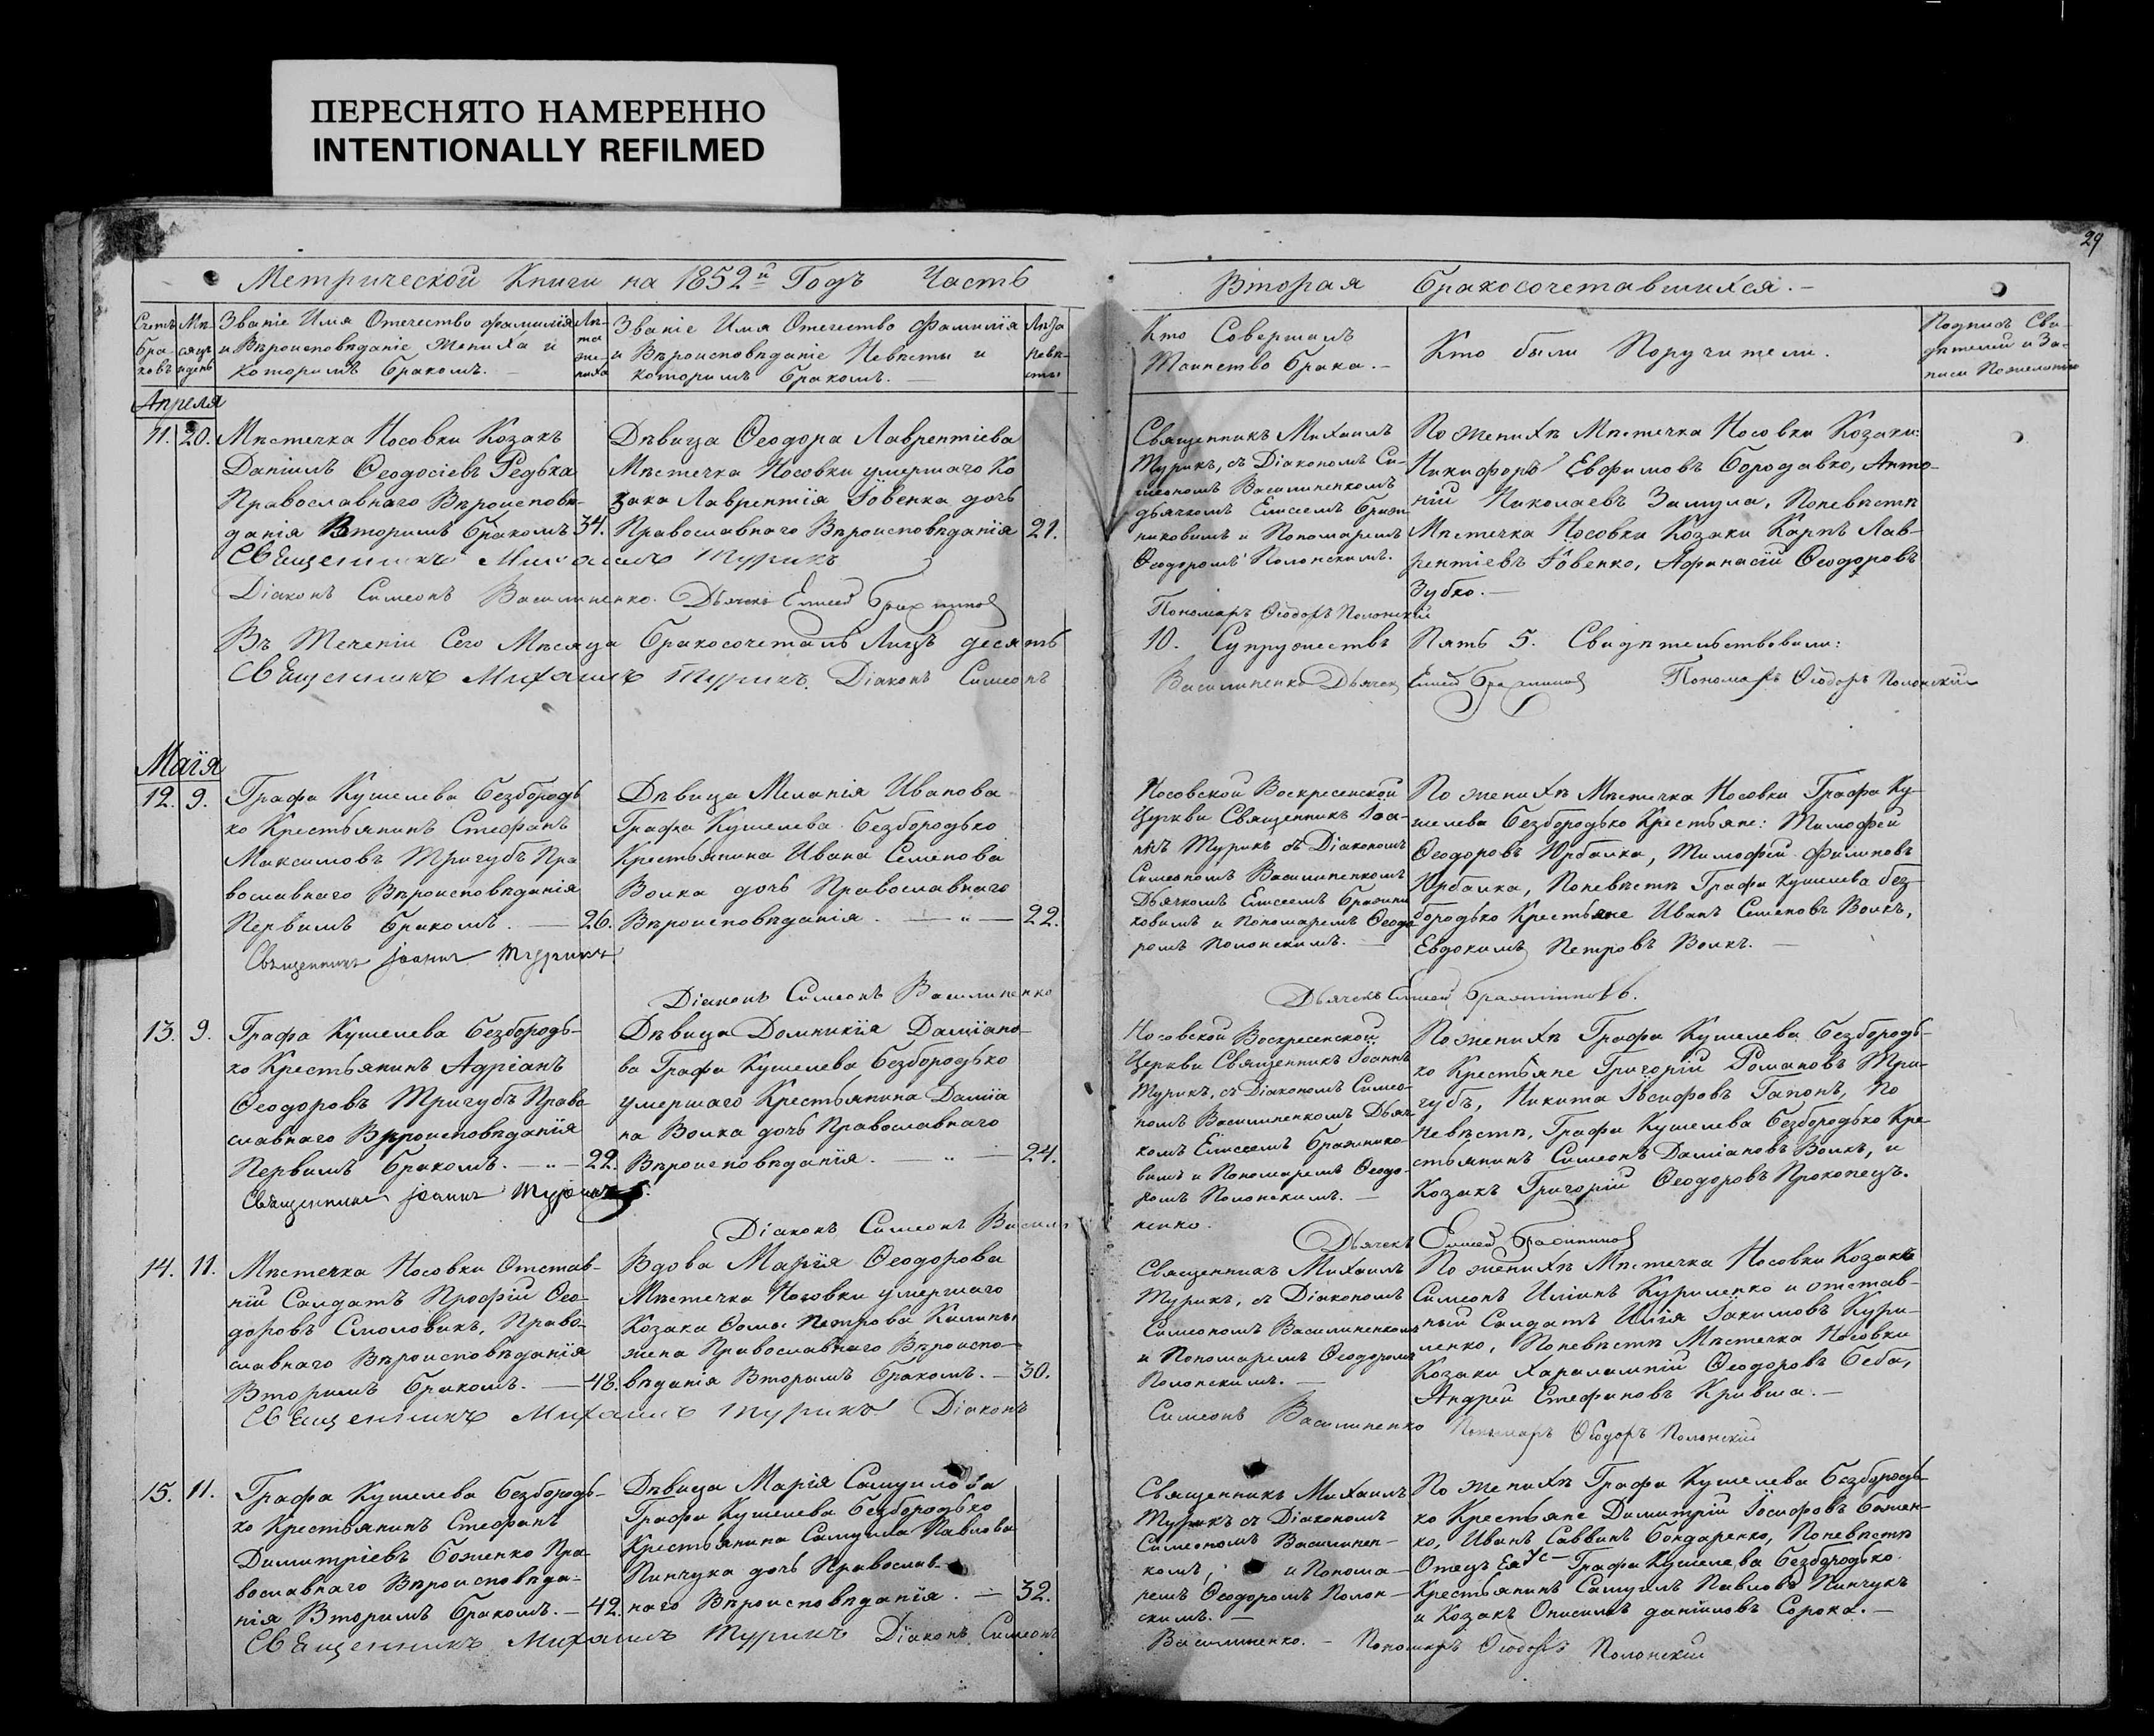 ПЕРЕСНЯТО НАМЕРЕННО
INTENTIONALLY REFILMED
29
Метрической Книги на 1852й Годъ Часть
Вторая бракосочетавшихся.-
Счетъ
бра-
ковъ
Мѣ-
сяцъ
и день
Званіе Имя Отечество фамилія
и Вѣроисповѣданіе Жениха и
которимъ бракомъ. -
Лѣ-
та
же-
ниха
Званіе Имя Отечество Фамилія
и Вѣроисповѣданіе Невѣсты и
которимъ бракомъ. -
Лѣта
невѣ-
сты
Кто Совершалъ
Таинство брака.-
Кто были Поручители.
Подпись Сви-
дѣтелей и За-
писи Пожеланію
Апреля
11. 20.
Мѣстечка Носовки Козакъ
Даніилъ Ѳеодосіевъ Редька
Православнаго Вѣроисповѣ-
данія Вторимъ бракомъ 34.
Дѣвица Ѳеодора Лаврентіева
Мѣстечка Носовки умершаго Ко
зака Лаврентія Іовенка дочь
Православнаго Вѣроисповѣданія 21.
Священникъ Михаилъ
Турикъ, съ Діакономъ Си-
меономъ Василиненкомъ
дьячкомъ Елисеемъ Бражи
никовимъ и Пономаремъ
Ѳеодоромъ Полонскимъ.
По женихѣ Мѣстечка Носовки Козаки:
Никифоръ Евфимовъ Бородавко, Анто-
ній Николаевъ Замула, Поневѣстѣ
Мѣстечка Носовки Козаки Карпъ Лав-
рентіевъ Іовенко, Афанасій Ѳеодоровъ
Зубко.-
Священникъ Михаилъ Турикъ
Діаконъ Симеонъ Василиненко. Дьячекъ Елисей
Пономарь Ѳеодоръ Полонскій
Въ Теченіи Сего Мѣсяца бракосочеталъ Лицъ десять
10. Супружествъ Пять 5. Свидѣтельствовали:
Священникъ Михаилъ Турикъ. Діаконъ Симеонъ
Василиненко Дьячек Елисей Пономарь Ѳеодоръ Полонскій
Маія
12. 9.
Графа Кушелева Безбородь
ко Крестьянинъ Стефанъ
Максимовъ Тригубъ Пра
вославнаго Вѣроисповѣданія
Первимъ бракомъ. — 26.
Дѣвица Меланія Иванова
Графа Кушелева Безбородько
Крестьянина Ивана Семенова
Волка дочь Православнаго
Вѣроисповѣданія. — „ — 22.
Носовской Воскресенской
Церкви Священникъ Іоа-
нъ Турикъ съ Діакономъ
Симеономъ Василиненкомъ
Дьячкомъ Елисеемъ Бражни
ковимъ и Пономаремъ Ѳеодо
ромъ Полонскимъ. —
По женихѣ Мѣстечка Носовки Графа Ку-
шелева Безбородько Крестьяне: Тимофей
Ѳеодоровъ Юрбалка, Тимофей Филиповъ
Юрбалка, Поневѣстѣ Графа Кушелева без-
бородько Крестьяне Иванъ Семеновъ Волкъ,
Евдокимъ Петровъ Волкъ. —
Священникъ Іоаннъ Турикъ
Діаконъ Симеонъ Василиненко
Дьячекъ Елисей
13. 9.
Графа Кушелева Безбородь-
ко Крестьянинъ Адріанъ
Ѳеодоровъ Тригубъ Право
славнаго Вѣроисповѣданія
Первимъ бракомъ. — „ — 22.
Дѣвица Домникія Даміано-
ва Графа Кушелева Безбородько
умершаго Крестьянина Даміа
на Волка дочь Православнаго
Вѣроисповѣданія. — „ — 24.
Носовской Воскресенской
Церкви Священникъ Іоаннъ
Турикъ, съ Діакономъ Симео-
номъ Василиненкомъ Дьяч
комъ Елисеемъ Бражнико
вимъ и Пономаремъ Ѳеодо-
ромъ Полонскимъ. —
По женихѣ Графа Кушелева Безбородь-
ко Крестьяне Григорій Романовъ Три-
губъ, Никита Іосифовъ Гапонъ, По
невѣстѣ, Графа Кушелева Безбородько Кре
стьянинъ Симеонъ Даміановъ Волкъ, и
Козакъ Григорій Ѳеодоровъ Прокопецъ.
Священникъ Іоаннъ Турикъ
Діаконъ Симеонъ Васили
ненко.
Дьячекъ Елисей
14. 11.
Мѣстечка Носовки Отстав-
ній Салдатъ Профій Ѳео-
доровъ Смоловикъ, Право-
славнаго Вѣроисповѣданія
Вторимъ бракомъ. — 48.
Вдова Марія Ѳеодорова
Мѣстечка Носовки умершаго
Козака Ѳомы Петрова Калины
жена Православнаго Вѣроиспо-
вѣданія Вторымъ бракомъ. — 30.
Священникъ Михаилъ
Турикъ, съ Діакономъ
Симеономъ Василиненкомъ
и Пономаремъ Ѳеодоромъ
Полонскимъ. —
По женихѣ Мѣстечка Носовки Козакъ
Симеонъ Иліинъ Куриленко и отстав-
ный Салдатъ Илія Іакимовъ Кури-
ленко, Поневѣстѣ Мѣстечка Носовки
Козаки Харалампій Ѳеодоровъ Беба,
Андрей Стефановъ Кривша. —
Священникъ Михаилъ Турикъ Діаконъ
Симеонъ Василиненко Пономарь Ѳеодоръ Полонскій
15. 11.
Графа Кушелева Безбородь-
ко Крестьянинъ Стефанъ
Димитріевъ Боженко Пра-
вославнаго Вѣроисповѣда-
нія Вторимъ бракомъ. — 42.
Дѣвица Марія Самуилова
Графа Кушелева Безбородько
Крестьянина Самуила Павлова
Пинчука дочь Православ-
наго Вѣроисповѣданія. — 32.
Священникъ Михаилъ
Турикъ съ Діакономъ
Симеономъ Василинен-
комъ, и Понома-
ремъ Ѳеодоромъ Полон-
скимъ. —
По женихѣ Графа Кушелева Безбородь-
ко Крестьяне Димитрій Іосифовъ Божен-
ко, Иванъ Саввинъ Бондаренко, Поневѣстѣ
Отецъ Графа Кушелева Безбородько
Крестьянинъ Самуилъ Павловъ Пинчукъ
и Козакъ Онисимъ даніиловъ Сорока. —
Священникъ Михаилъ Турикъ Діаконъ Симеонъ
Василиненко. - Пономарь Ѳеодоръ Полонскій